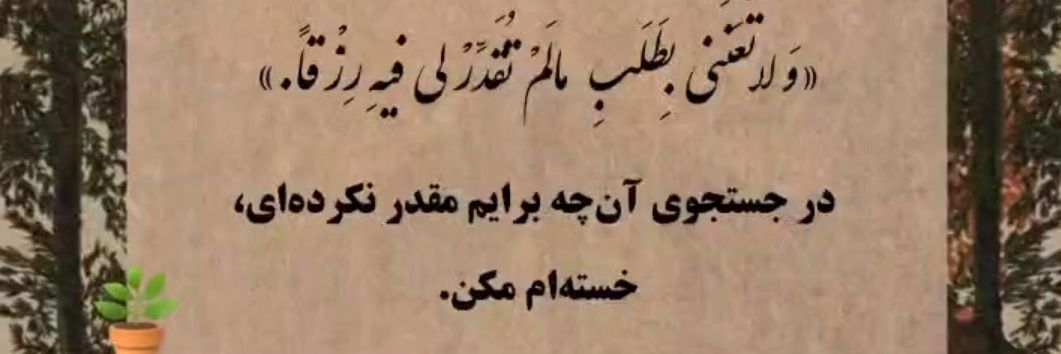 «وَلا تُعَنِّنی بِطَلَبِ مالَمْ تُقَدِّرْ لی فیهِ رِزْقاً.»
در جستجوی آن‌چه برایم مقدر نکرده‌ای،
خسته‌ام مکن.